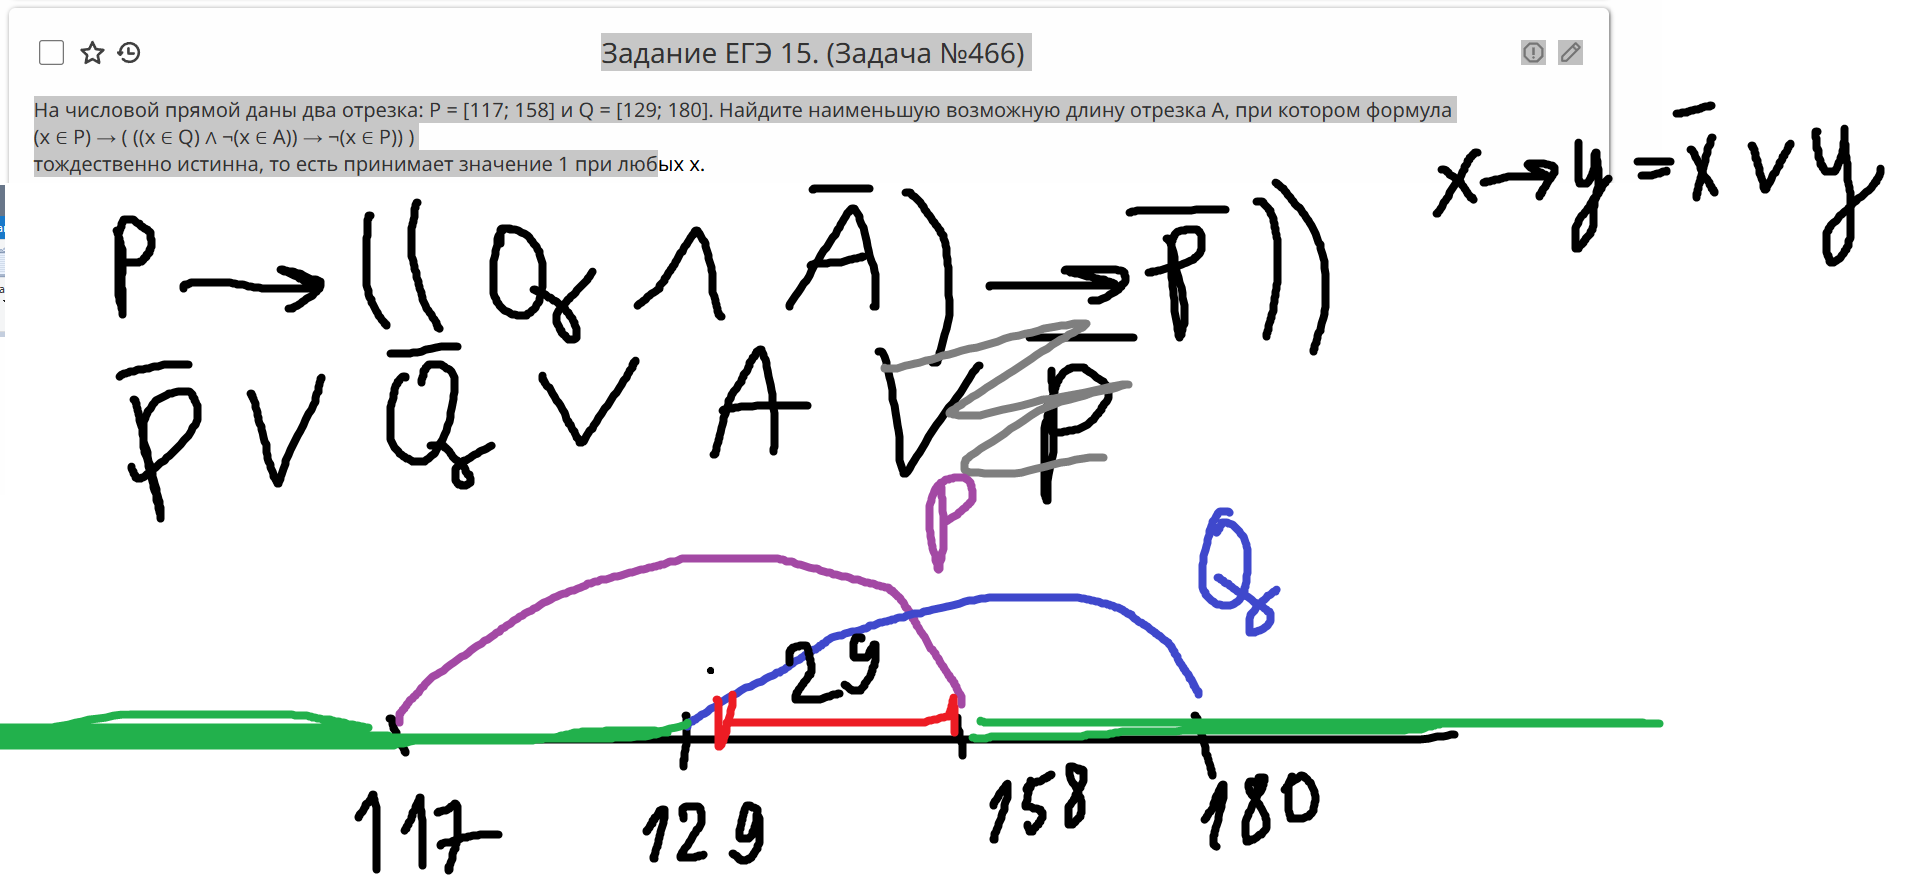 Задание ЕГЭ 15. (Задача №466)
На числовой прямой даны два отрезка: P = [117; 158] и Q = [129; 180]. Найдите наименьшую возможную длину отрезка A, при котором формула
(x ∈ P) → ( ((x ∈ Q) ∧ ¬(x ∈ A)) → ¬(x ∈ P)) )
тождественно истинна, то есть принимает значение 1 при любых x.
x → y = x̅ ∨ y
P → ((Q ∧ A̅) → P̅))
P̅ ∨ Q̅ ∨ A ∨ P̅
P
Q
29
117 129 158 180